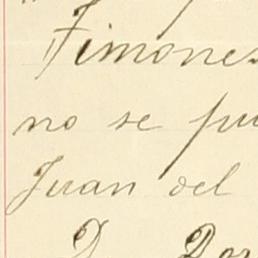 Timones
no se pu
Juan del
D. Do